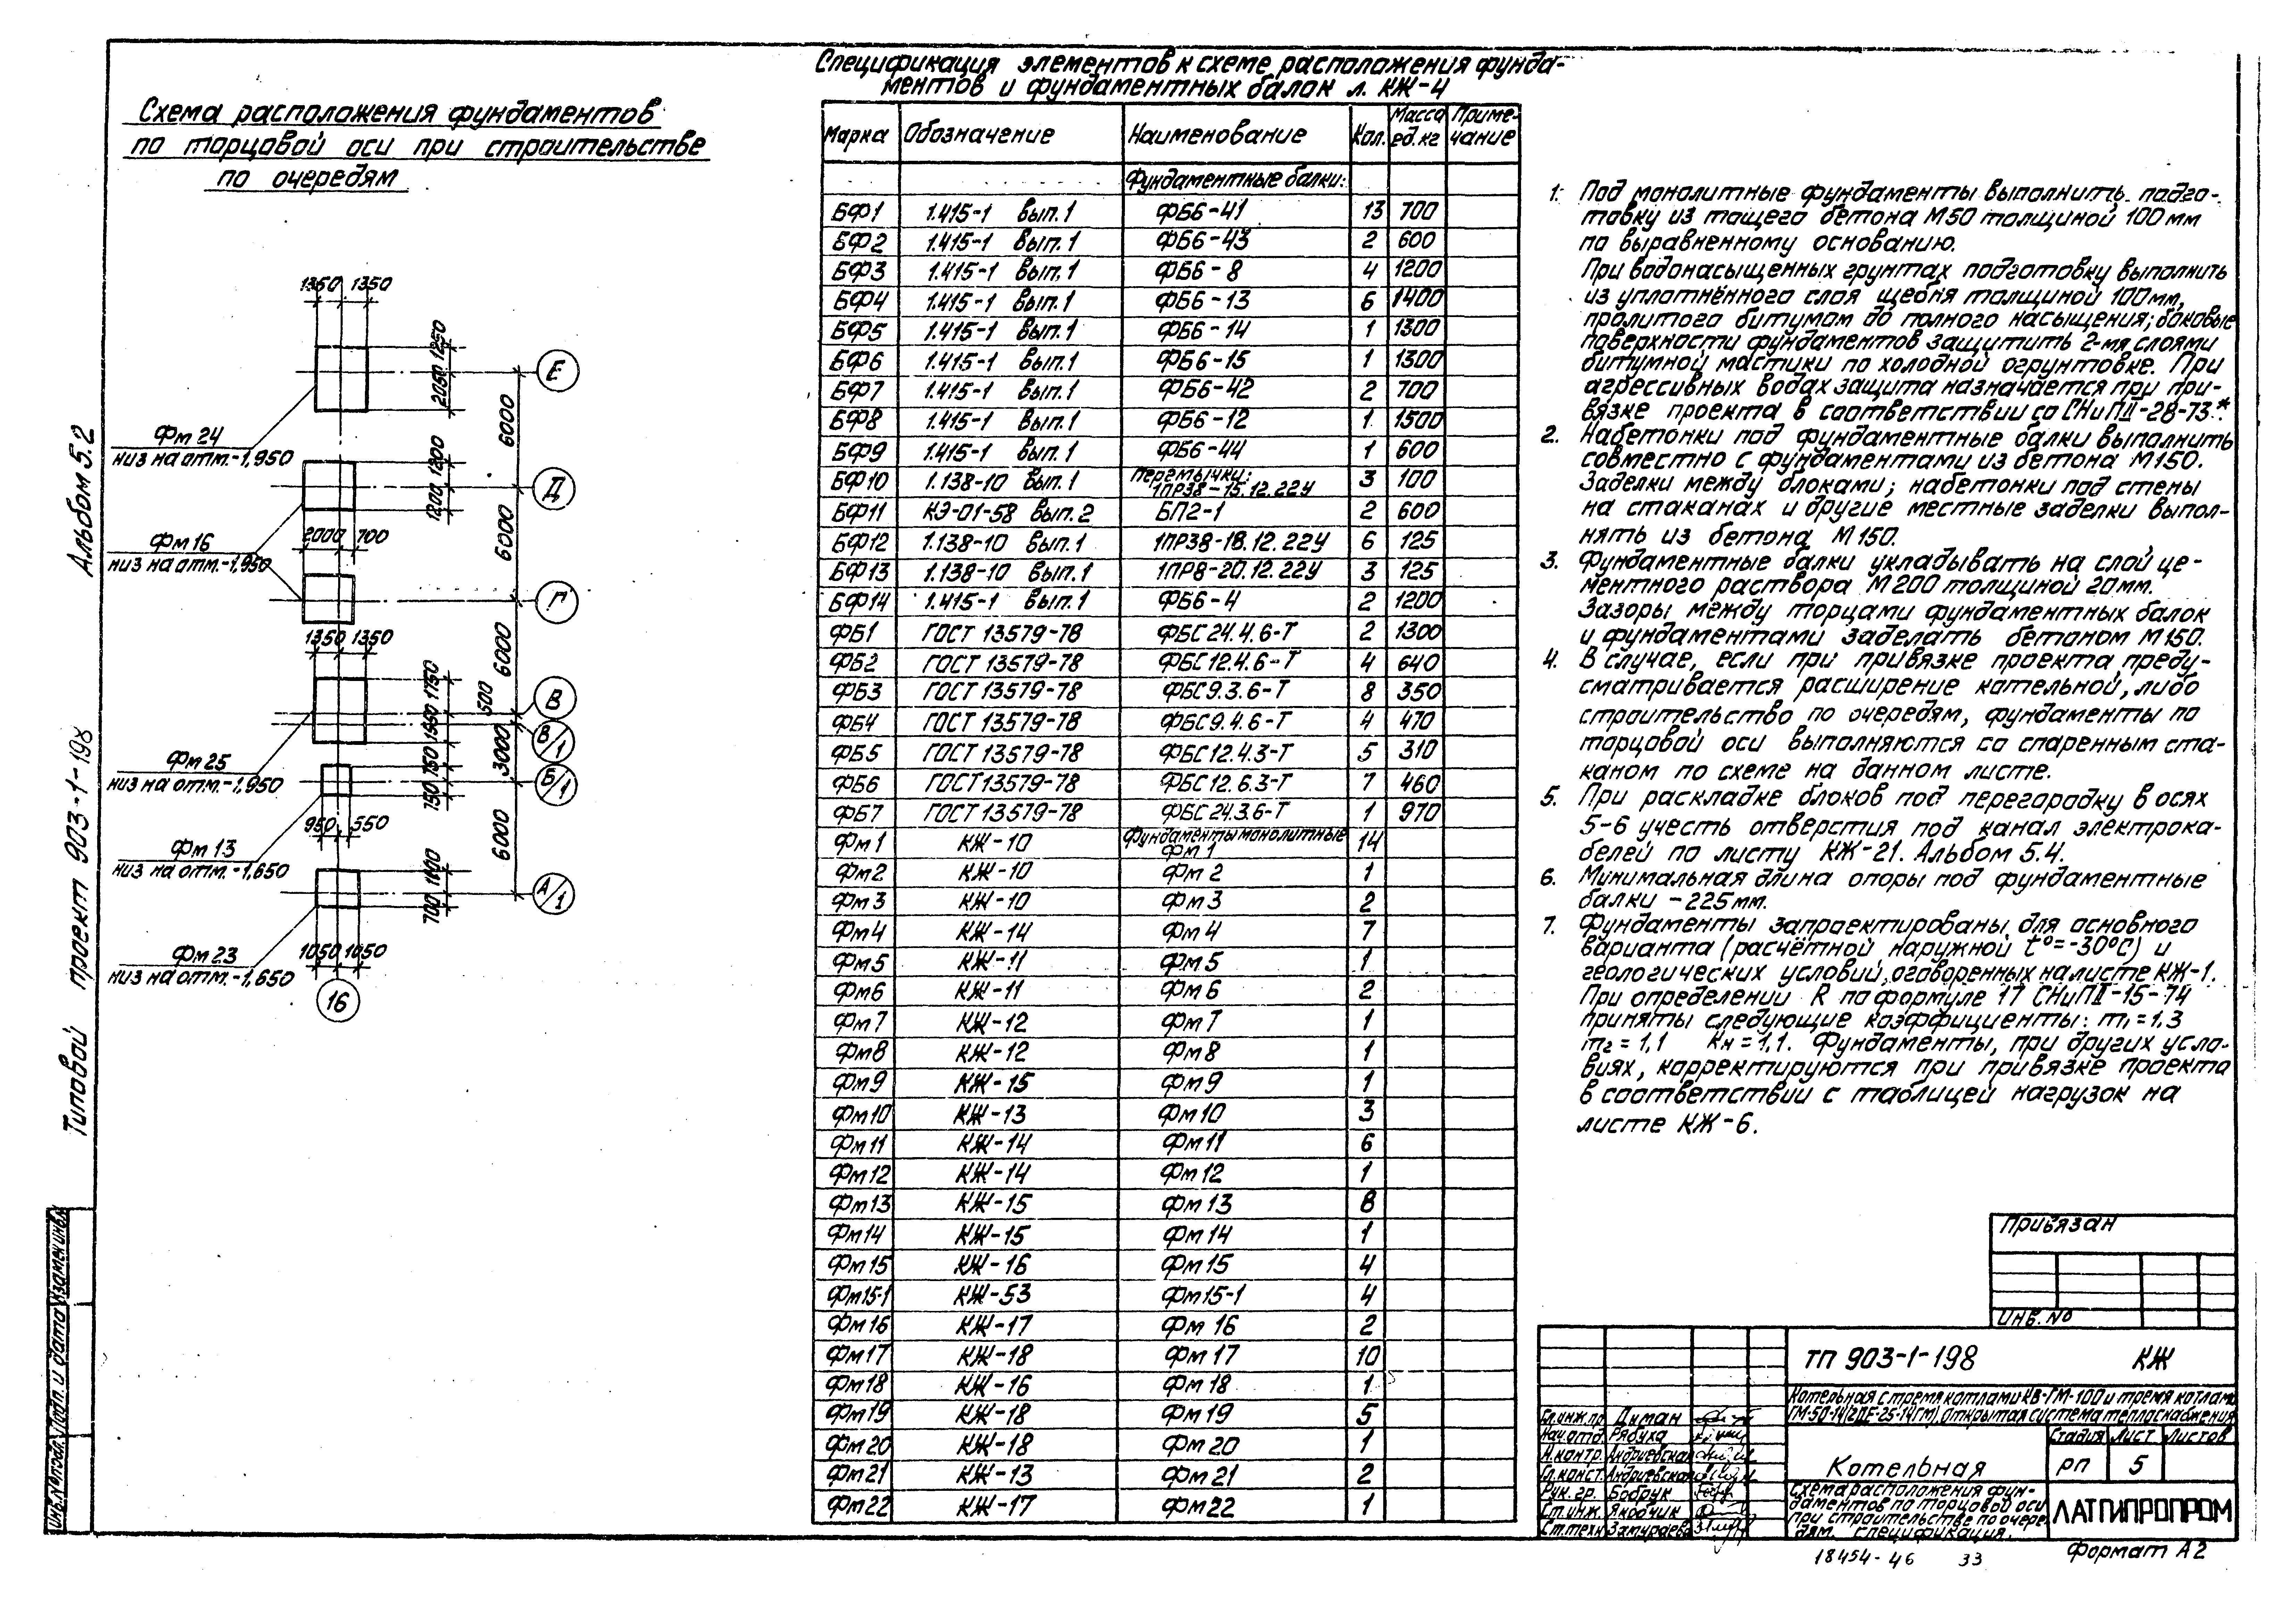 Схема расположения фундаментов
по торцовой оси при строительстве
по очередям
1350 1350
1250
2050
Е
6000
Фм 24
низ на отм.-1,950
1200
1200
Д
Фм 16
низ на отм.-1,950
2000 700
6000
Г
1350 1350
6000
1750
500
В
1450
В/1
3000
Фм 25
низ на отм.-1,950
750
750
Б/1
950 550
6000
Фм 13
низ на отм.-1,650
700
А/1
Фм 23
низ на отм.-1,650
1050 1050
16
Альбом 5.2
Типовой проект 903-1-198
Спецификация элементов к схеме расположения фунда-
ментов и фундаментных балок л. КЖ-4
Марка Обозначение Наименование Кол. Масса ед. кг Приме-чание
Фундаментные балки:
БФ1 1.415-1 вып.1 ФБ6-41 13 700
БФ2 1.415-1 вып.1 ФБ6-43 2 600
БФ3 1.415-1 вып.1 ФБ6-8 4 1200
БФ4 1.415-1 вып.1 ФБ6-13 6 1400
БФ5 1.415-1 вып.1 ФБ6-14 1 1300
БФ6 1.415-1 вып.1 ФБ6-15 1 1300
БФ7 1.415-1 вып.1 ФБ6-42 2 700
БФ8 1.415-1 вып.1 ФБ6-12 1 1500
БФ9 1.415-1 вып.1 ФБ6-44 1 600
Перемычки:
БФ10 1.138-10 вып.1 1ПР38-15.12.22У 3 100
БФ11 КЭ-01-58 вып.2 БП2-1 2 600
БФ12 1.138-10 вып.1 1ПР38-18.12.22У 6 125
БФ13 1.138-10 вып.1 1ПР8-20.12.22У 3 125
БФ14 1.415-1 вып.1 ФБ6-4 2 1200
ФБ1 ГОСТ 13579-78 ФБС24.4.6-Т 2 1300
ФБ2 ГОСТ 13579-78 ФБС12.4.6-Т 4 640
ФБ3 ГОСТ 13579-78 ФБС9.3.6-Т 8 350
ФБ4 ГОСТ 13579-78 ФБС9.4.6-Т 4 470
ФБ5 ГОСТ 13579-78 ФБС12.4.3-Т 5 310
ФБ6 ГОСТ 13579-78 ФБС12.6.3-Т 7 460
ФБ7 ГОСТ 13579-78 ФБС24.3.6-Т 1 970
Фундаменты монолитные
Фм1 КЖ-10 Фм 1 14
Фм2 КЖ-10 Фм 2 1
Фм3 КЖ-10 Фм 3 2
Фм4 КЖ-14 Фм 4 7
Фм5 КЖ-11 Фм 5 1
Фм6 КЖ-11 Фм 6 2
Фм7 КЖ-12 Фм 7 1
Фм8 КЖ-12 Фм 8 1
Фм9 КЖ-15 Фм 9 1
Фм10 КЖ-13 Фм 10 3
Фм11 КЖ-14 Фм 11 6
Фм12 КЖ-14 Фм 12 1
Фм13 КЖ-15 Фм 13 8
Фм14 КЖ-15 Фм 14 1
Фм15 КЖ-16 Фм 15 4
Фм15-1 КЖ-53 Фм 15-1 4
Фм16 КЖ-17 Фм 16 2
Фм17 КЖ-18 Фм 17 10
Фм18 КЖ-16 Фм 18 1
Фм19 КЖ-18 Фм 19 5
Фм20 КЖ-18 Фм 20 1
Фм21 КЖ-13 Фм 21 2
Фм22 КЖ-17 Фм 22 1
1. Под монолитные фундаменты выполнить подго-
товку из тощего бетона М50 толщиной 100мм
по выравненному основанию.
При водонасыщенных грунтах подготовку выполнить
из уплотнённого слоя щебня толщиной 100мм,
пролитого битумом до полного насыщения; боковые
поверхности фундаментов защитить 2-мя слоями
битумной мастики по холодной огрунтовке. При
агрессивных водах защита назначается при при-
вязке проекта в соответствии со СНиП II-28-73.*
2. Набетонки под фундаментные балки выполнить
совместно с фундаментами из бетона М150.
Заделки между блоками; набетонки под стены
на стаканах и другие местные заделки выпол-
нять из бетона М150.
3. Фундаментные балки укладывать на слой це-
ментного раствора М200 толщиной 20мм.
Зазоры между торцами фундаментных балок
и фундаментами заделать бетоном М150.
4. В случае, если при привязке проекта преду-
сматривается расширение котельной, либо
строительство по очередям, фундаменты по
торцовой оси выполняются со спаренным ста-
каном по схеме на данном листе.
5. При раскладке блоков под перегородку в осях
5-6 учесть отверстия под канал электрока-
белей по листу КЖ-21. Альбом 5.4.
6. Минимальная длина опоры под фундаментные
балки -225мм.
7. Фундаменты запроектированы для основного
варианта (расчётной наружной t°=-30°С) и
геологических условий, оговоренных на листе КЖ-1.
При определении R по формуле 17 СНиП II-15-74
приняты следующие коэффициенты: m₁=1,3
m₂=1,1 Kн=1,1. Фундаменты, при других усло-
виях, корректируются при привязке проекта
в соответствии с таблицей нагрузок на
листе КЖ-6.
Привязан
Инв. №
ТП 903-1-198 КЖ
Котельная с тремя котлами КВ-ГМ-100 и тремя котлами
ГМ-50-14(2ДЕ-25-14ГМ). Открытая система теплоснабжения
Гл.инж.пр Диман
Нач.отд. Рябуха
Н.контр. Андриевская
Гл.конст. Андриевская
Рук. гр. Бобрук
Ст.инж. Якобчик
Ст.техн Замураева
Котельная
Стадия Лист Листов
РП 5
Схема расположения фун-
даментов по торцовой оси
при строительстве по очере-
дям. Спецификация.
ЛАТГИПРОПРОМ
Инв.№ подл. Подп. и дата Взамен инв.№
18454-46 33
Формат А2